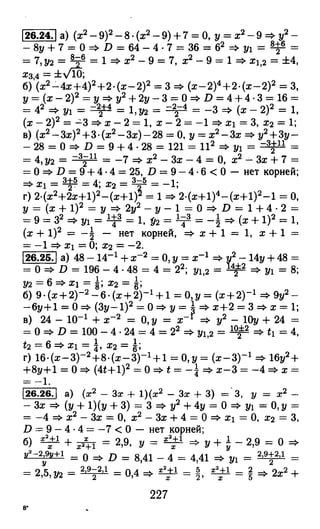 26.24. а) (x² – 9)² – 8·(x² – 9) + 7 = 0, y = x² – 9 ⇒ y² –
– 8y + 7 = 0 ⇒ D = 64 – 4 · 7 = 36 = 6² ⇒ y₁ = (8+6)/2 =
= 7, y₂ = (8–6)/2 = 1 ⇒ x² – 9 = 7, x² – 9 = 1 ⇒ x₁,₂ = ±4,
x₃,₄ = ±√10;
б) (x² – 4x + 4)² + 2·(x – 2)² = 3 ⇒ (x – 2)⁴ + 2·(x – 2)² = 3,
y = (x – 2)² = y ⇒ y² + 2y – 3 = 0 ⇒ D = 4 + 4 · 3 = 16 =
= 4² ⇒ y₁ = (–2+4)/2 = 1, y₂ = (–2–4)/2 = –3 ⇒ (x – 2)² = 1,
(x – 2)² = –3 ⇒ x – 2 = 1, x – 2 = –1 ⇒ x₁ = 3, x₂ = 1;
в) (x² – 3x)² + 3·(x² – 3x) – 28 = 0, y = x² – 3x ⇒ y² + 3y –
– 28 = 0 ⇒ D = 9 + 4 · 28 = 121 = 11² ⇒ y₁ = (–3+11)/2 =
= 4, y₂ = (–3–11)/2 = –7 ⇒ x² – 3x – 4 = 0, x² – 3x + 7 =
= 0 ⇒ D = 9 + 4 · 4 = 25, D = 9 – 4 · 6 < 0 — нет корней;
⇒ x₁ = (3+5)/2 = 4; x₂ = (3–5)/2 = –1;
г) 2·(x² + 2x + 1)² – (x + 1)² = 1 ⇒ 2·(x+1)⁴ – (x+1)² – 1 = 0,
y = (x + 1)² = y ⇒ 2y² – y – 1 = 0 ⇒ D = 1 + 4 · 2 =
= 9 = 3² ⇒ y₁ = (1+3)/4 = 1, y₂ = (1–3)/4 = –1/2 ⇒ (x + 1)² = 1,
(x + 1)² = –1/2 — нет корней, ⇒ x + 1 = 1, x + 1 =
= –1 ⇒ x₁ = 0; x₂ = –2.
26.25. а) 48 – 14x⁻¹ + x⁻² = 0, y = x⁻¹ ⇒ y² – 14y + 48 =
= 0 ⇒ D = 196 – 4 · 48 = 4 = 2²; y₁,₂ = (14±2)/2 ⇒ y₁ = 8;
y₂ = 6 ⇒ x₁ = 1/8; x₂ = 1/6;
б) 9·(x + 2)⁻² – 6·(x + 2)⁻¹ + 1 = 0, y = (x + 2)⁻¹ ⇒ 9y² –
–6y + 1 = 0 ⇒ (3y – 1)² = 0 ⇒ y = 1/3 ⇒ x + 2 = 3 ⇒ x = 1;
в) 24 – 10⁻¹ + x⁻² = 0, y = x⁻¹ ⇒ y² – 10y + 24 =
= 0 ⇒ D = 100 – 4 · 24 = 4 = 2² ⇒ y₁,₂ = (10±2)/2 ⇒ t₁ = 4,
t₂ = 6 ⇒ x₁ = 1/4, x₂ = 1/6;
г) 16·(x–3)⁻² + 8·(x–3)⁻¹ + 1 = 0, y = (x–3)⁻¹ ⇒ 16y² +
+8y + 1 = 0 ⇒ (4t+1)² = 0 ⇒ t = –1/4 ⇒ x – 3 = –4 ⇒ x =
= –1.
26.26. а) (x² – 3x + 1)(x² – 3x + 3) = 3, y = x² –
– 3x ⇒ (y + 1)(y + 3) = 3 ⇒ y² + 4y = 0 ⇒ y₁ = 0, y =
= –4 ⇒ x² – 3x = 0, x² – 3x + 4 = 0 ⇒ x₁ = 0, x₂ = 3,
D = 9 – 4 · 4 = –7 < 0 — нет корней;
б) (x²+1)/x + x/(x²+1) = 2,9, y = (x²+1)/x ⇒ y + 1/y – 2,9 = 0 ⇒
(y²–2,9y+1)/y = 0 ⇒ D = 8,41 – 4 = 4,41 ⇒ y₁ = (2,9+2,1)/2 =
= 2,5, y₂ = (2,9–2,1)/2 = 0,4 ⇒ (x²+1)/x = 5/2, (x²+1)/x = 2/5 ⇒ 2x² +
227
8*